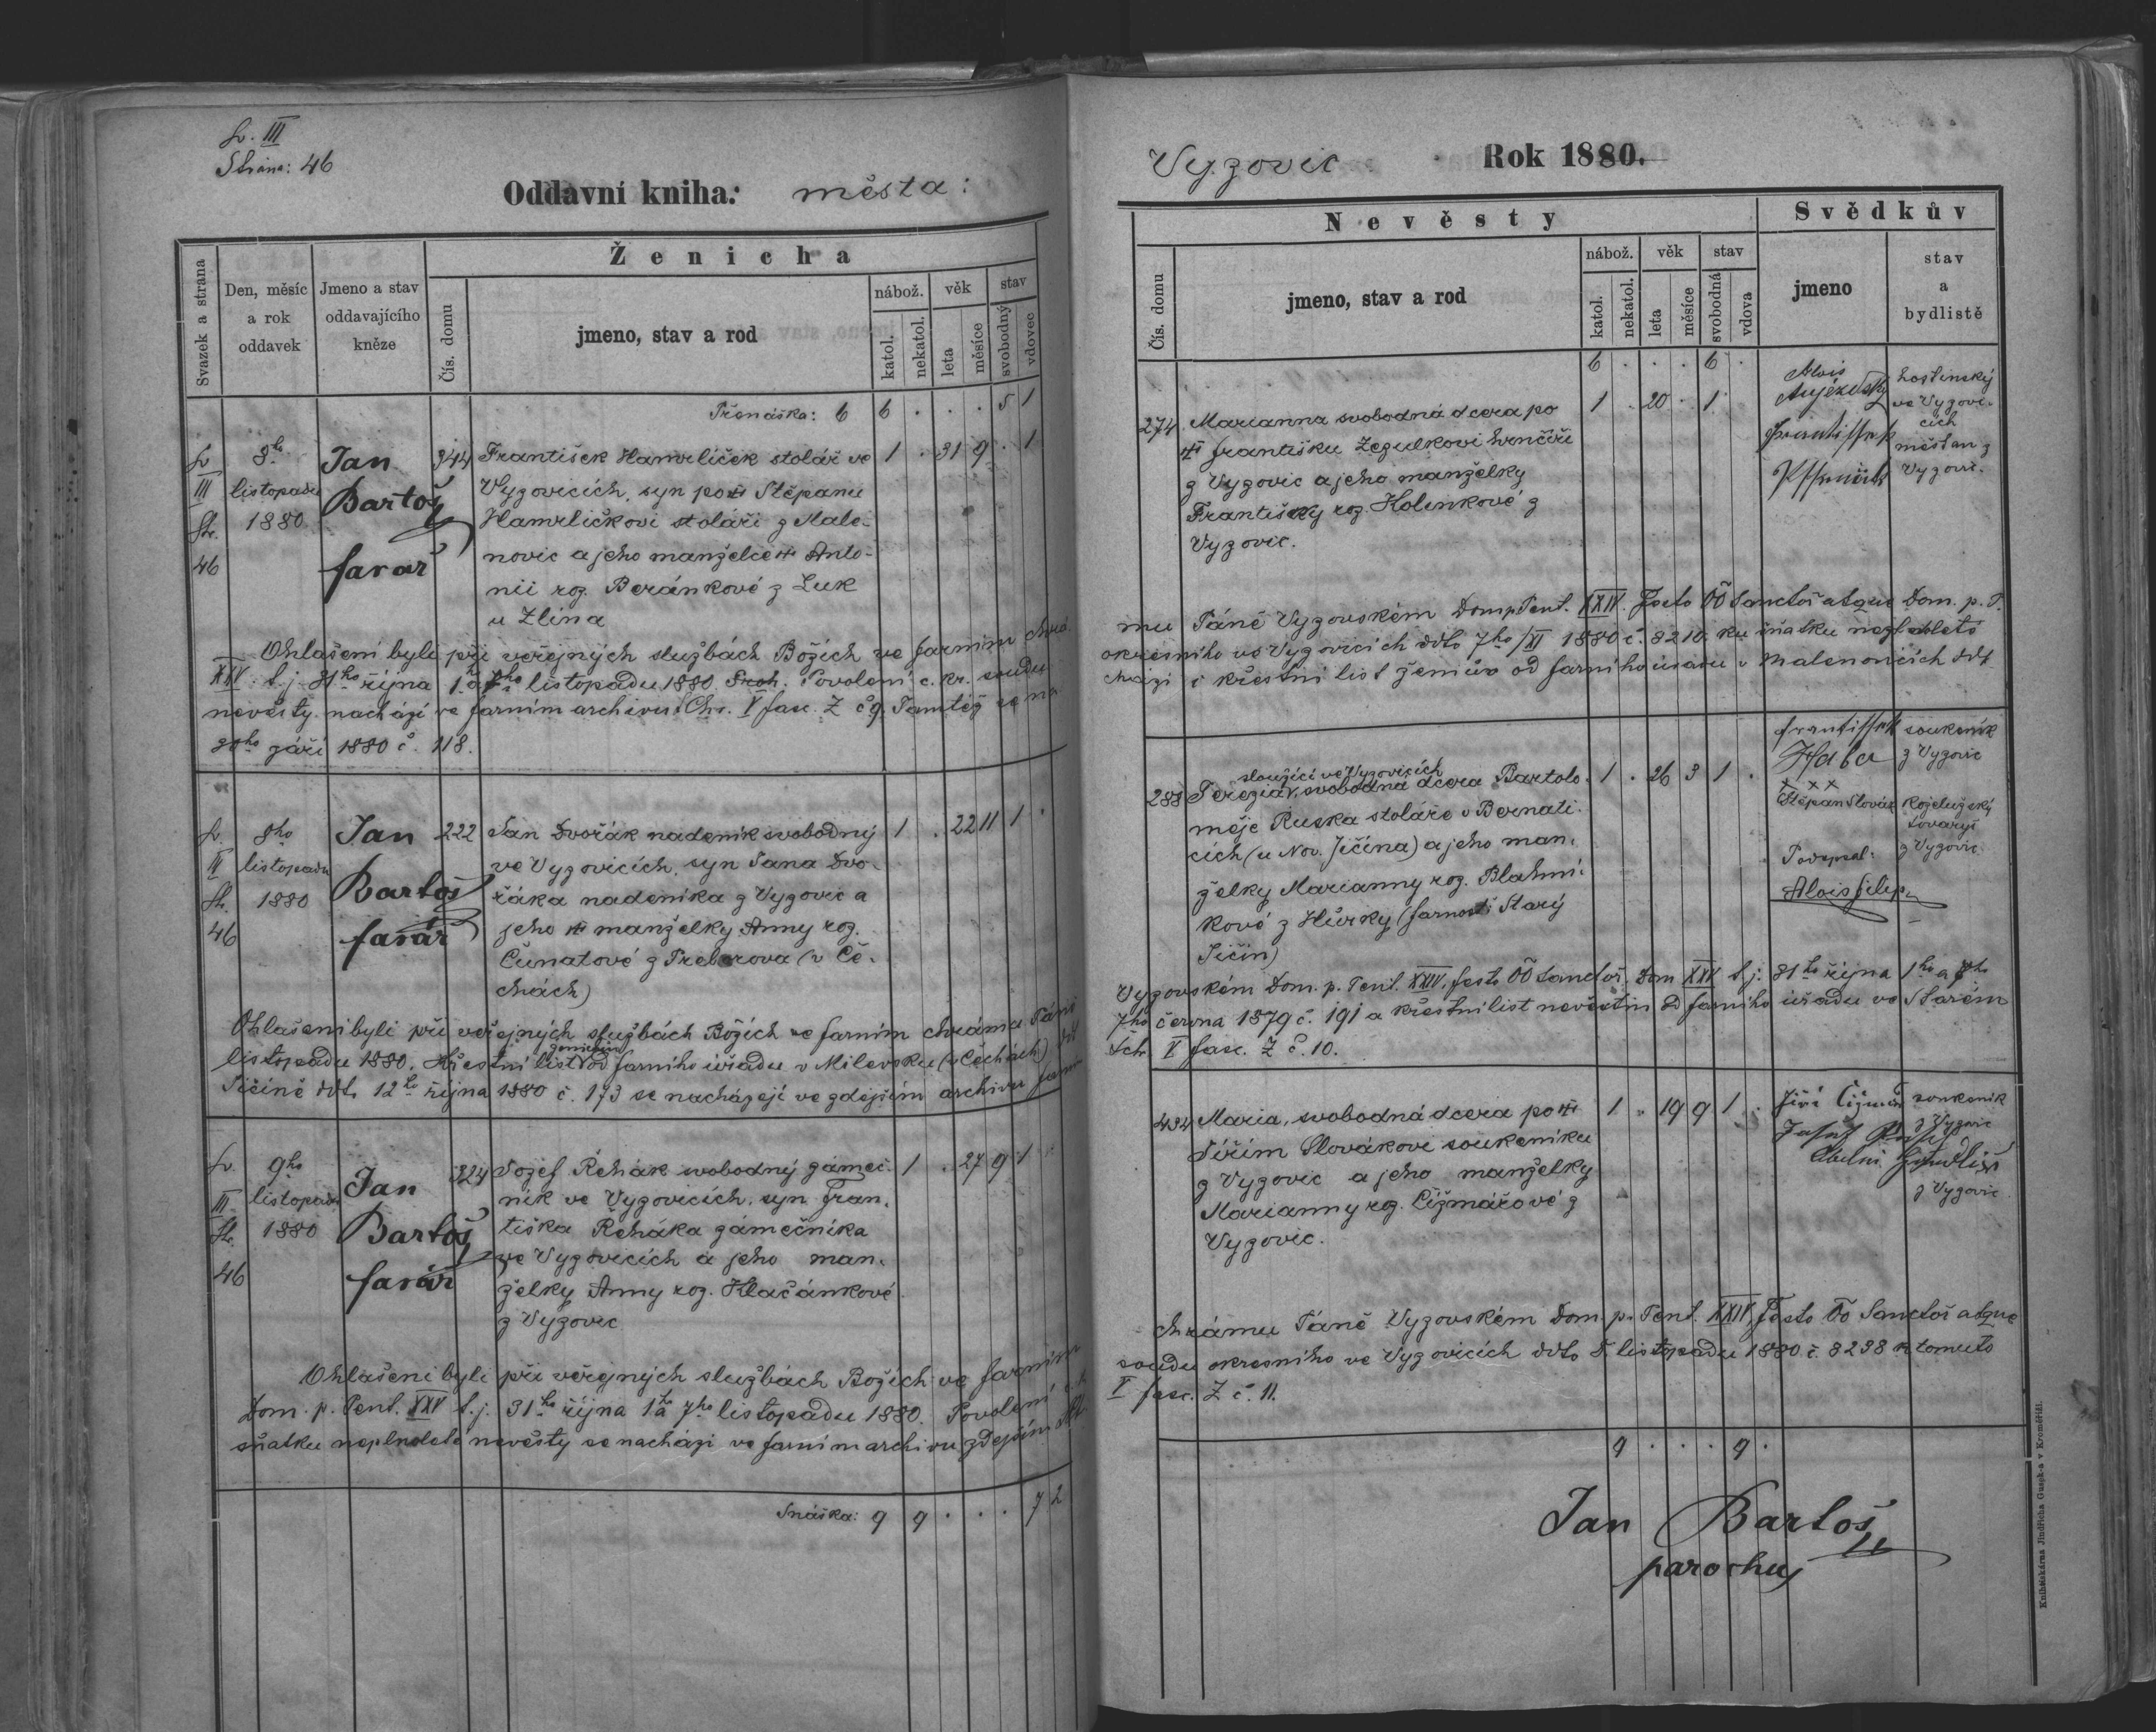 Sv. III
Strana: 46
Oddavní kniha: města:
Svazek a strana
Den, měsíc a rok oddavek
Jmeno a stav oddavajícího kněze
Ženicha
Čís. domu
jmeno, stav a rod
nábož.
katol.
nekatol.
věk
leta
měsíce
stav
svobodný
vdovec
Přenáška: 6 6 . . . 5 1
Sv. III Str. 46
8ho listopadu 1880
Jan Bartoš farář
344
František Hamrlíček stolář ve 1 . 31 9 . 1
Vyzovicích, syn po Štěpanu
Hamrlíčkovi stoláři z Male-
novic a jeho manželce Anto-
nii roz. Beránkové z Luk
u Zlína
Ohlašeni byli při veřejných službách Božích ve farním chrá-
XXV. t. j. 31ho října 1. a 7ho listopadu 1880. Povolení c. kr. soudu
nevěsty nachází ve farním archivu: Chr. V fasc. Z č 9. Tamtéž se na
září 1880 č. 118.
Sv. Str. 46
8ho listopadu 1880
Jan Bartoš farář
222
Jan Dvořák nadeník svobodný 1 . 22 11 1 .
ve Vyzovicích, syn Jana Dvo-
řáka nadeníka z Vyzovic a
jeho manželky Anny roz.
Čunatové z (v Če-
chách)
Ohlašeni byli při veřejných službách Božích ve farním chrámu Páně
listopadu 1880. Křestní list ženichův od farního úřadu v Milevsku (v Čechách) ddt
Jičíně ddt. 12ho října 1880 č. 173 se nacházejí ve zdejším archivu farn
Sv. III Str. 46
9ho listopadu 1880
Jan Bartoš farář
324
Josef Řehák svobodný zámeč- 1 . 27 9 1
ník ve Vyzovicích, syn Fran-
tiška Řeháka zámečníka
ve Vyzovicích a jeho man-
želky Anny roz. Klačánkové
z Vyzovic
Ohlašeni byli při veřejných službách Božích ve farním
Dom. p. Pent. XXV t. j. 31ho října 1 a 7ho listopadu 1880. Povolení
sňatku neplnoleté nevěsty se nachází ve farním archivu zdejším
Snáška: 9 9 . . . 7 2
Vyzovic Rok 1880.
Nevěsty
Svědkův
Čís. domu
jmeno, stav a rod
nábož.
katol.
nekatol.
věk
leta
měsíce
stav
svobodná
vdova
jmeno
stav a bydlistě
6 . . . 6 .
274
Marianna svobodná dcera po 1 . 20 . 1
Františku Zegulkovi hrnčíři
z Vyzovic a jeho manželky
Františky roz. Holinkové z
Vyzovic.
Alois
hostinský
ve Vyzovi-
cích
měšťan z
Vyzovic.
mu Páně Vyzovském Dom. p. Pent. XXIV. Festo OO Sanctoř atque Dom. p. P.
okresního ve Vyzovicích ddto 7ho/XI 1880 č. 8210. ku sňatku nezletilé
chází i křestní list ženichův od farního úřadu v Malenovicích ddt
288
sloužící ve Vyzovicích
Terezia svobodná dcera Bartolo- 1 . 26 3 1 .
měje Ruska stoláře v Bernati-
cích (u Nov. Jičína) a jeho man-
želky Marianny roz. Blahmí-
kové z Hůrky (farností Starý
Jičín)
Haba
soukeník
z Vyzovic
x x x
Štěpan Slovák
koželužský
tovaryš
z Vyzovic
Podepsal:
Alois Filip
Vyzovském Dom. p. Pent. XXIV. festo OO Sanctoř. Dom XXV t. j. 31ho října 1ho a 7ho
7ho června 1879 č. 191 a křestní list nevěstin od farního úřadu ve Starém
V fasc. Z č. 10.
434
Maria, svobodná dcera po 1 . 19 9 1 .
Jiřím Slovákovi soukeníku
z Vyzovic a jeho manželky
Marianny roz. Čižmářové z
Vyzovic.
Jiří
soukeník
z Vyzovic
z Vyzovic.
chrámu Páně Vyzovském Dom. p. Pent. XXIV. Festo OO Sanctoř atque
soudu okresního ve Vyzovicích ddto 5. listopadu 1880 č. 8238 k tomuto
V fasc. Z č. 11.
9 . . . 9 .
Jan Bartoš
parochus
Knihtiskárna Jindřicha Gusek-a v Kroměříži.